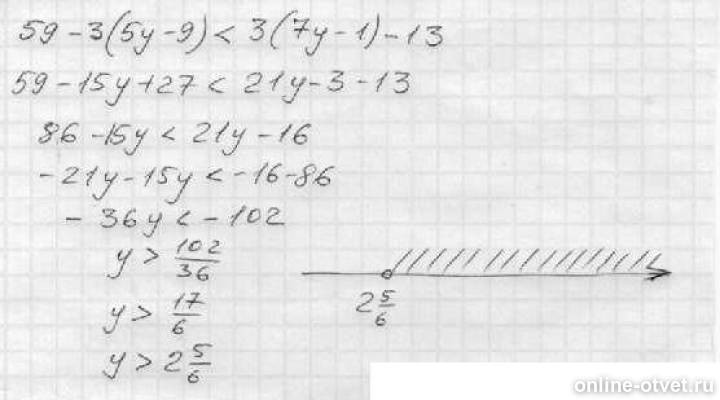 59 - 3(5y - 9) < 3(7y - 1) - 13
59 - 15y + 27 < 21y - 3 - 13
86 - 15y < 21y - 16
- 21y - 15y < - 16 - 86
- 36y < - 102
y > 102/36
y > 17/6
y > 2 5/6
2 5/6
online-otvet.ru